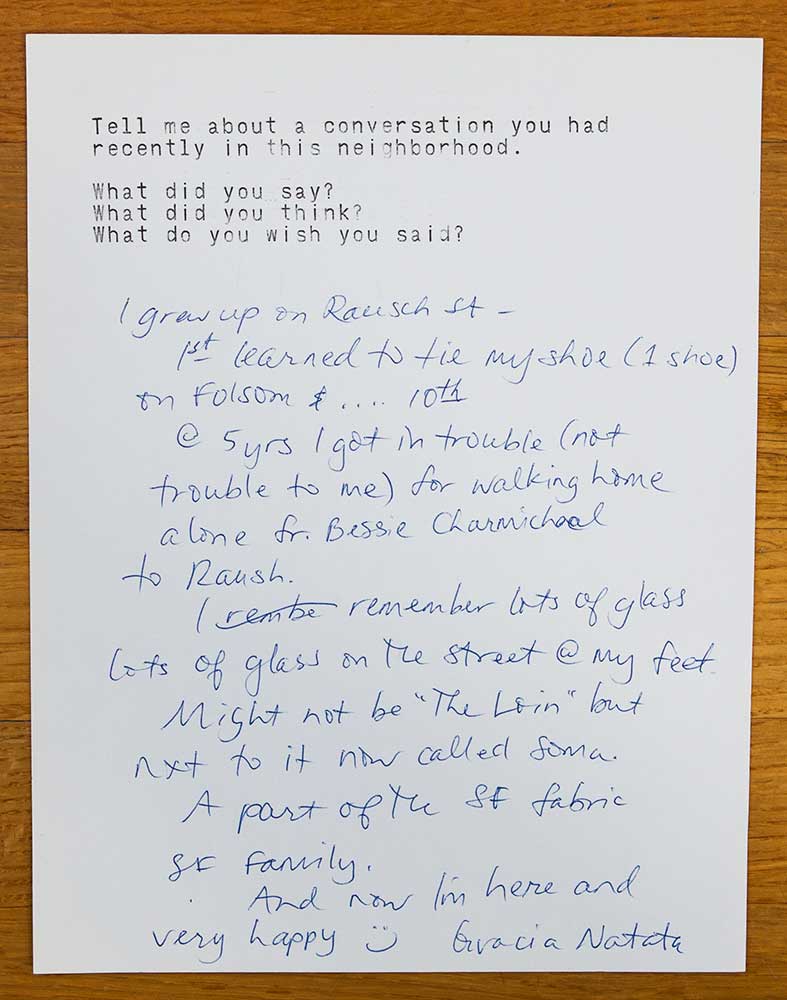 Tell me about a conversation you had
recently in this neighborhood.
What did you say?
What did you think?
What do you wish you said?
I grew up on Rausch St –
1st learned to tie my shoe (1 shoe)
on Folsom & .... 10th
@ 5 yrs I got in trouble (not
trouble to me) for walking home
alone fr. Bessie Charmichael
to Raush.
I rembe remember lots of glass
lots of glass on the street @ my feet.
Might not be "The Loin" but
nxt to it now called Soma.
A part of the SF fabric
SF Family.
And now I'm here and
very happy :) Gracia Natata